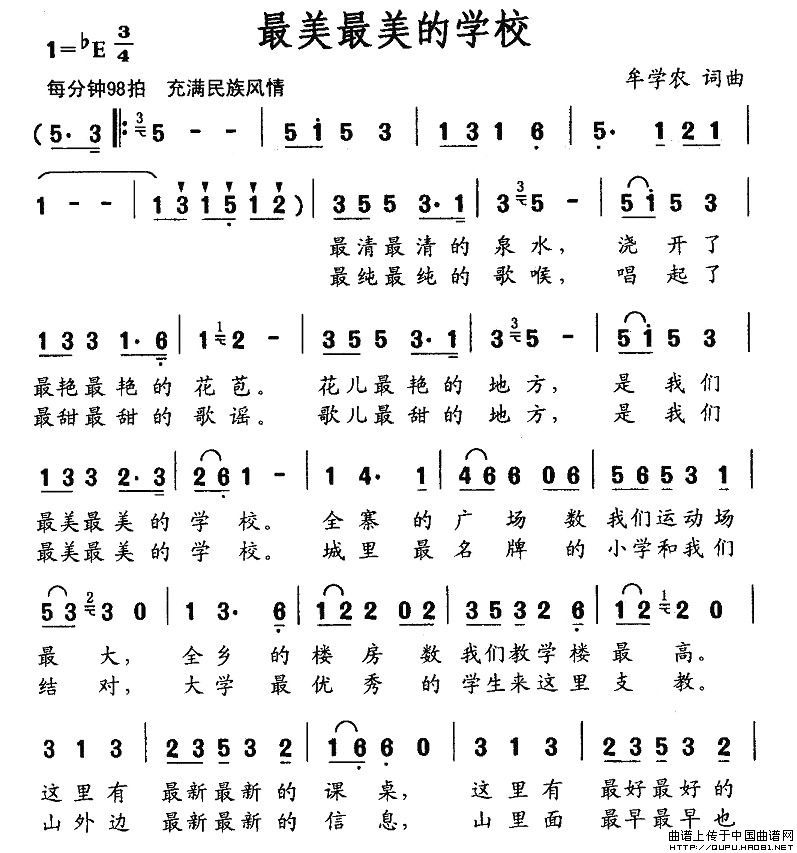 最美最美的学校
1=♭E 3/4
每分钟98拍 充满民族风情
牟学农 词曲
(5· 3 ‖: 3 5 - - | 5 i 5 3 | 1 3 1 6 | 5· 1 2 1 |
1 - - | 1 3 1 5 1 2 ) | 3 5 5 3· 1 | 3 3 5 - | 5 i 5 3 |
最清最清的 泉水， 浇开了
最纯最纯的 歌喉， 唱起了
1 3 3 1· 6 | 1 1 2 - | 3 5 5 3· 1 | 3 3 5 - | 5 i 5 3 |
最艳最艳的 花苞。 花儿最艳的 地方， 是我们
最甜最甜的 歌谣。 歌儿最甜的 地方， 是我们
1 3 3 2· 3 | 2 6 1 - | 1 4· 1 | 4 6 6 0 6 | 5 6 5 3 1 |
最美最美的 学校。 全寨的广场数我们运动场
最美最美的 学校。 城里最名牌的小学和我们
5 3 2 3 0 | 1 3· 6 | 1 2 2 0 2 | 3 5 3 2 6 | 1 2 1 2 0 |
最大， 全乡的楼房数我们教学楼最高。
结对， 大学最优秀的学生来这里支教。
3 1 3 | 2 3 5 3 2 | 1 6 6 0 | 3 1 3 | 2 3 5 3 2 |
这里有 最新最新的 课桌， 这里有 最好最好的
山外边 最新最新的 信息， 山里面 最早最早也
曲谱上传于中国曲谱网
HTTP://QUPU.HAO81.NET